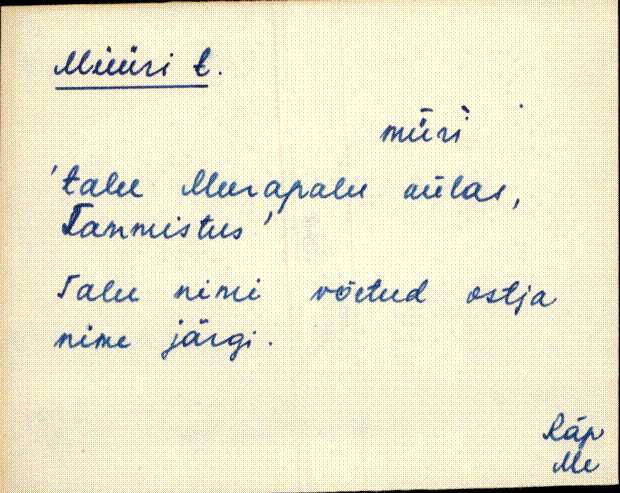 Müüri t.
mǖri
'talu Meerapalu külas,
Tammistus'
Talu nimi võetud ostja
nime järgi.
Räp
Me